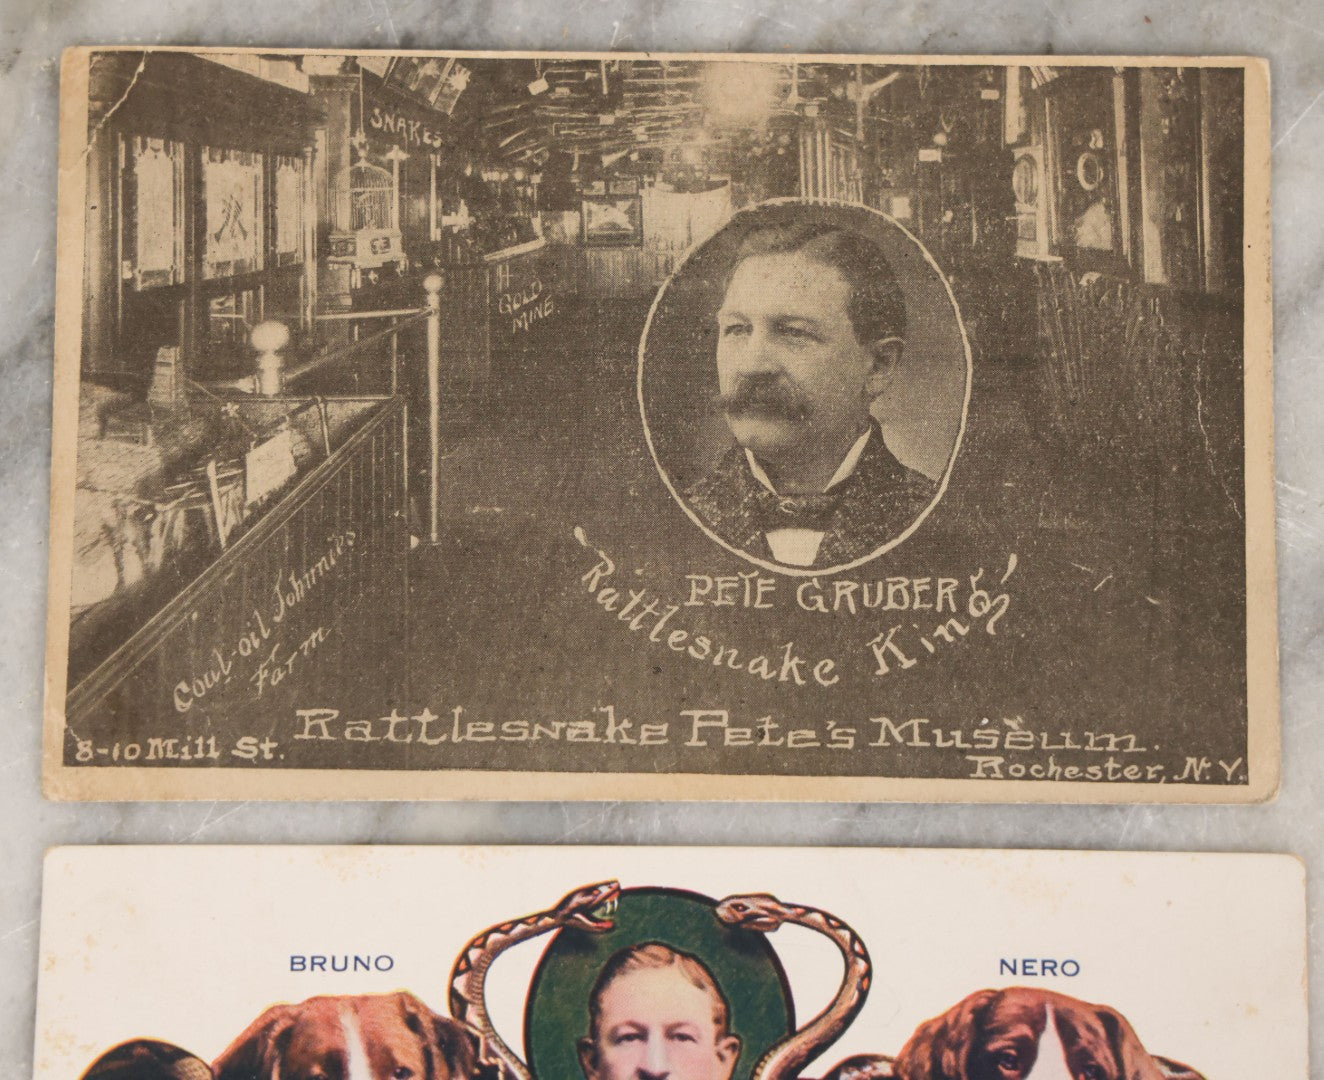 SNAKES
GOLD
MINE.
Coal-oil Johnnies
Farm
PETE GRUBER
"Rattlesnake King"
8-10 Mill St.
Rattlesnake Pete's Museum.
Rochester, N.Y.
BRUNO
NERO